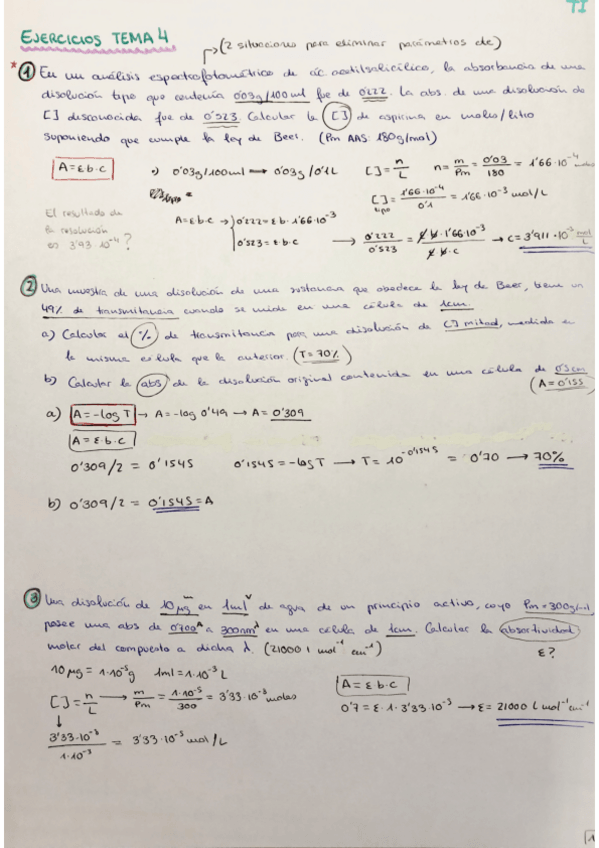 TI
EJERCICIOS TEMA 4
(2 situaciones para eliminar parámetros de)
* ① En un análisis espectrofotométrico de ác acetilsalicílico, la absorbancia de una
disolución tipo que contenía 0'03g/100ml fue de 0'222. La abs. de una disolución de
[ ] desconocida fue de 0'523. Calcular la [ ] de aspirina en moles/litro
suponiendo que cumple la ley de Beer. (Pm AAS: 180g/mol)
A=εbc
0'03g/100ml → 0'03g/0'1L
[ ]=n/L n=m/Pm=0'03/180=1'66·10⁻⁴ moles
[ ]tipo=1'66·10⁻⁴/0'1=1'66·10⁻³ mol/L
El resultado de
la resolución
es 3'93·10⁻⁴?
A=εb·c → 0'222=εb·1'66·10⁻³
0'523=ε·b·c
→ 0'222/0'523=ε·b·1'66·10⁻³/ε·b·c → c=3'911·10⁻³ mol/L
② Una muestra de una disolución de una sustancia que obedece la ley de Beer, tiene un
49% de transmitancia cuando se mide en una célula de 1cm.
a) Calcular el % de transmitancia para una disolución de [ ] mitad, medida en
la misma célula que la anterior. (T=70%)
b) Calcular la abs de la disolución original contenida en una célula de 0'5cm
(A=0'155)
a) A=-log T → A=-log 0'49 → A=0'309
A=ε·b·c
0'309/2=0'1545 0'1545=-log T → T=10^-0'1545=0'70 → 70%
b) 0'309/2=0'1545=A
③ Una disolución de 10μg en 1ml de agua de un principio activo, cuyo Pm=300g/mol,
posee una abs de 0'700 a 300nm en una célula de 1cm. Calcular la absortividad
molar del compuesto a dicha λ. (21000 l mol⁻¹ cm⁻¹)
ε?
10μg=1·10⁻⁵g 1ml=1·10⁻³L
[ ]=n/L → m/Pm=1·10⁻⁵/300=3'33·10⁻³ moles
3'33·10⁻³/1·10⁻³=3'33·10⁻⁵ mol/L
A=εb·c
0'7=ε·1·3'33·10⁻³ → ε=21000 L mol⁻¹cm⁻¹
1